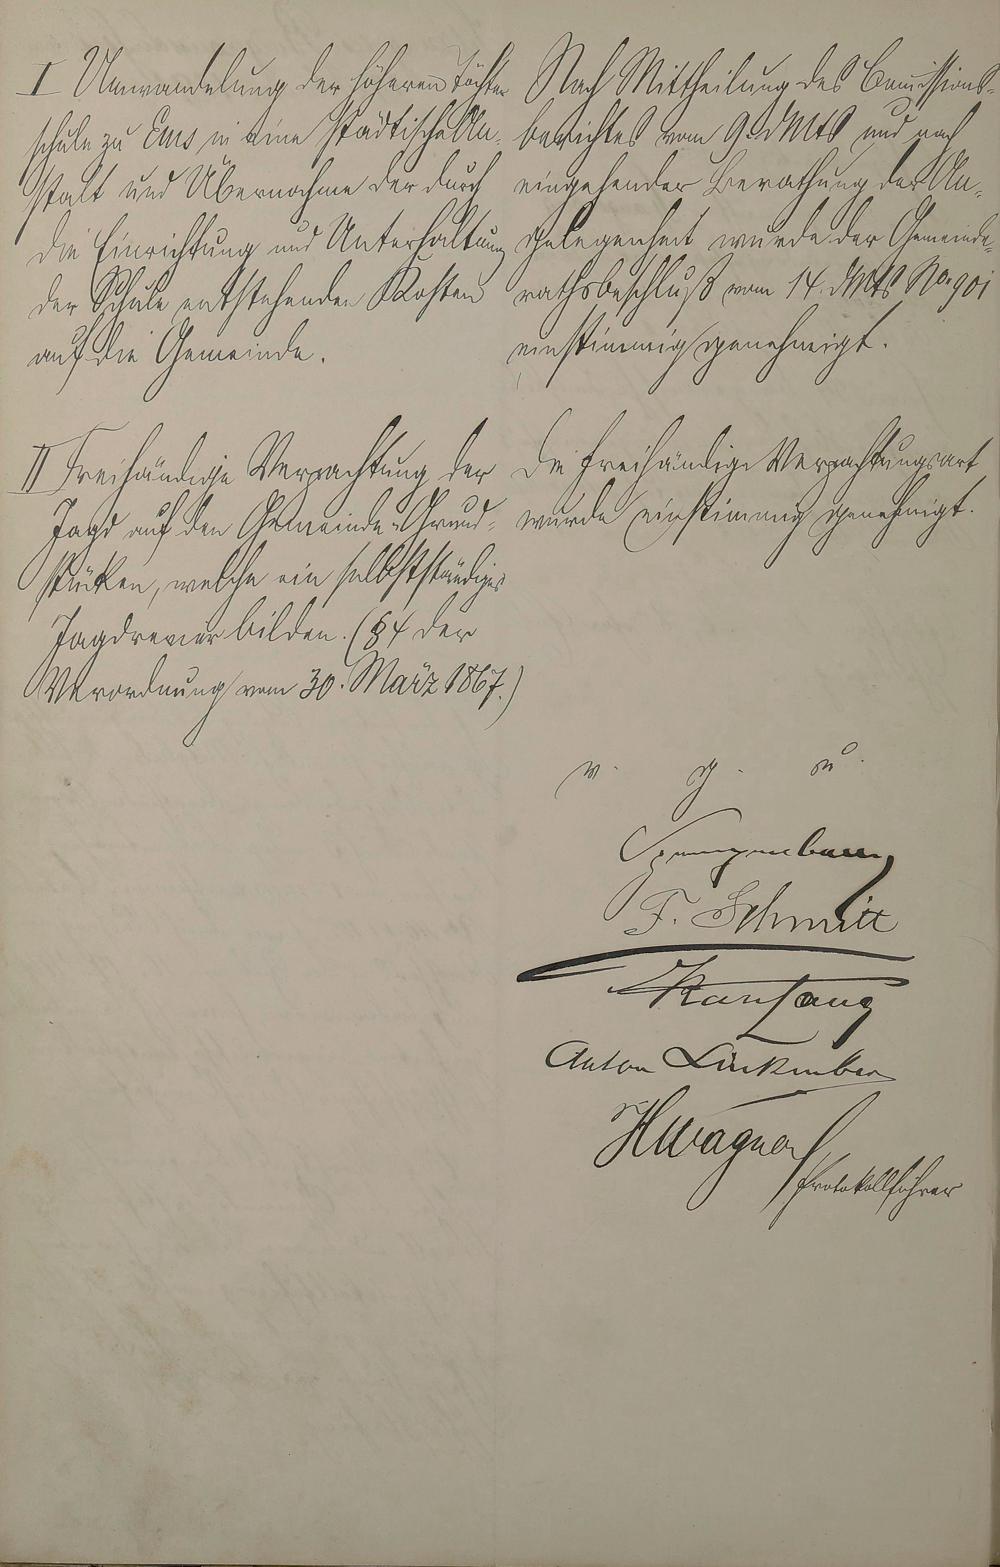 I Umwandelung der höheren Töchter
schule zu Ems in eine städtische An-
stalt und Übernahme der durch
die Einrichtung und Unterhaltung
der Schule entstehenden Kosten
auf die Gemeinde.
Nach Mittheilung des Comissions-
berichtes vom 9. d Mts und nach
eingehender Berathung der An-
gelegenheit wurde der Gemeinde-
rathsbeschluß vom 14. d Mts No. 901
einstimmig genehmigt.
II Freihändige Verpachtung der
Jagd auf den Gemeinde-Grund-
stücken, welche ein selbstständiges
Jagdrevier bilden. (§ 4 der
Verordnung vom 30. März 1867.)
Die freihändige Verpachtungsart
wurde einstimmig genehmigt.
v. g. u.
F. Schmitt
Karl Lang
Anton Linkenbach
HWagner
Protokollführer